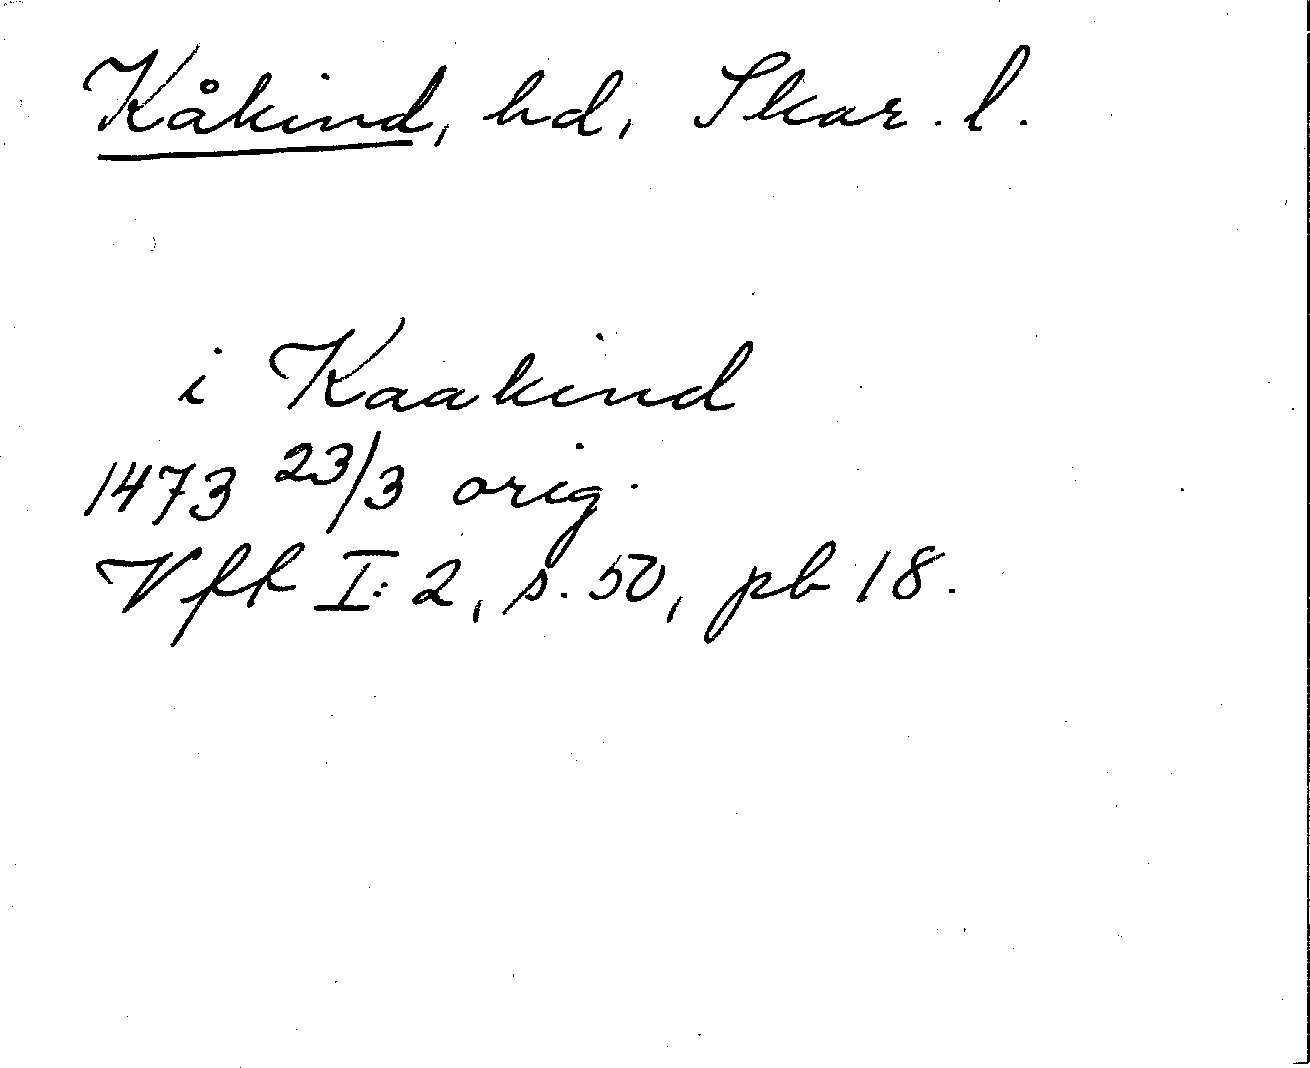 Kåkind, hd, Skar. l.
i Kaakind
1473 23/3 orig.
Vff I:2, s. 50, pb 18.